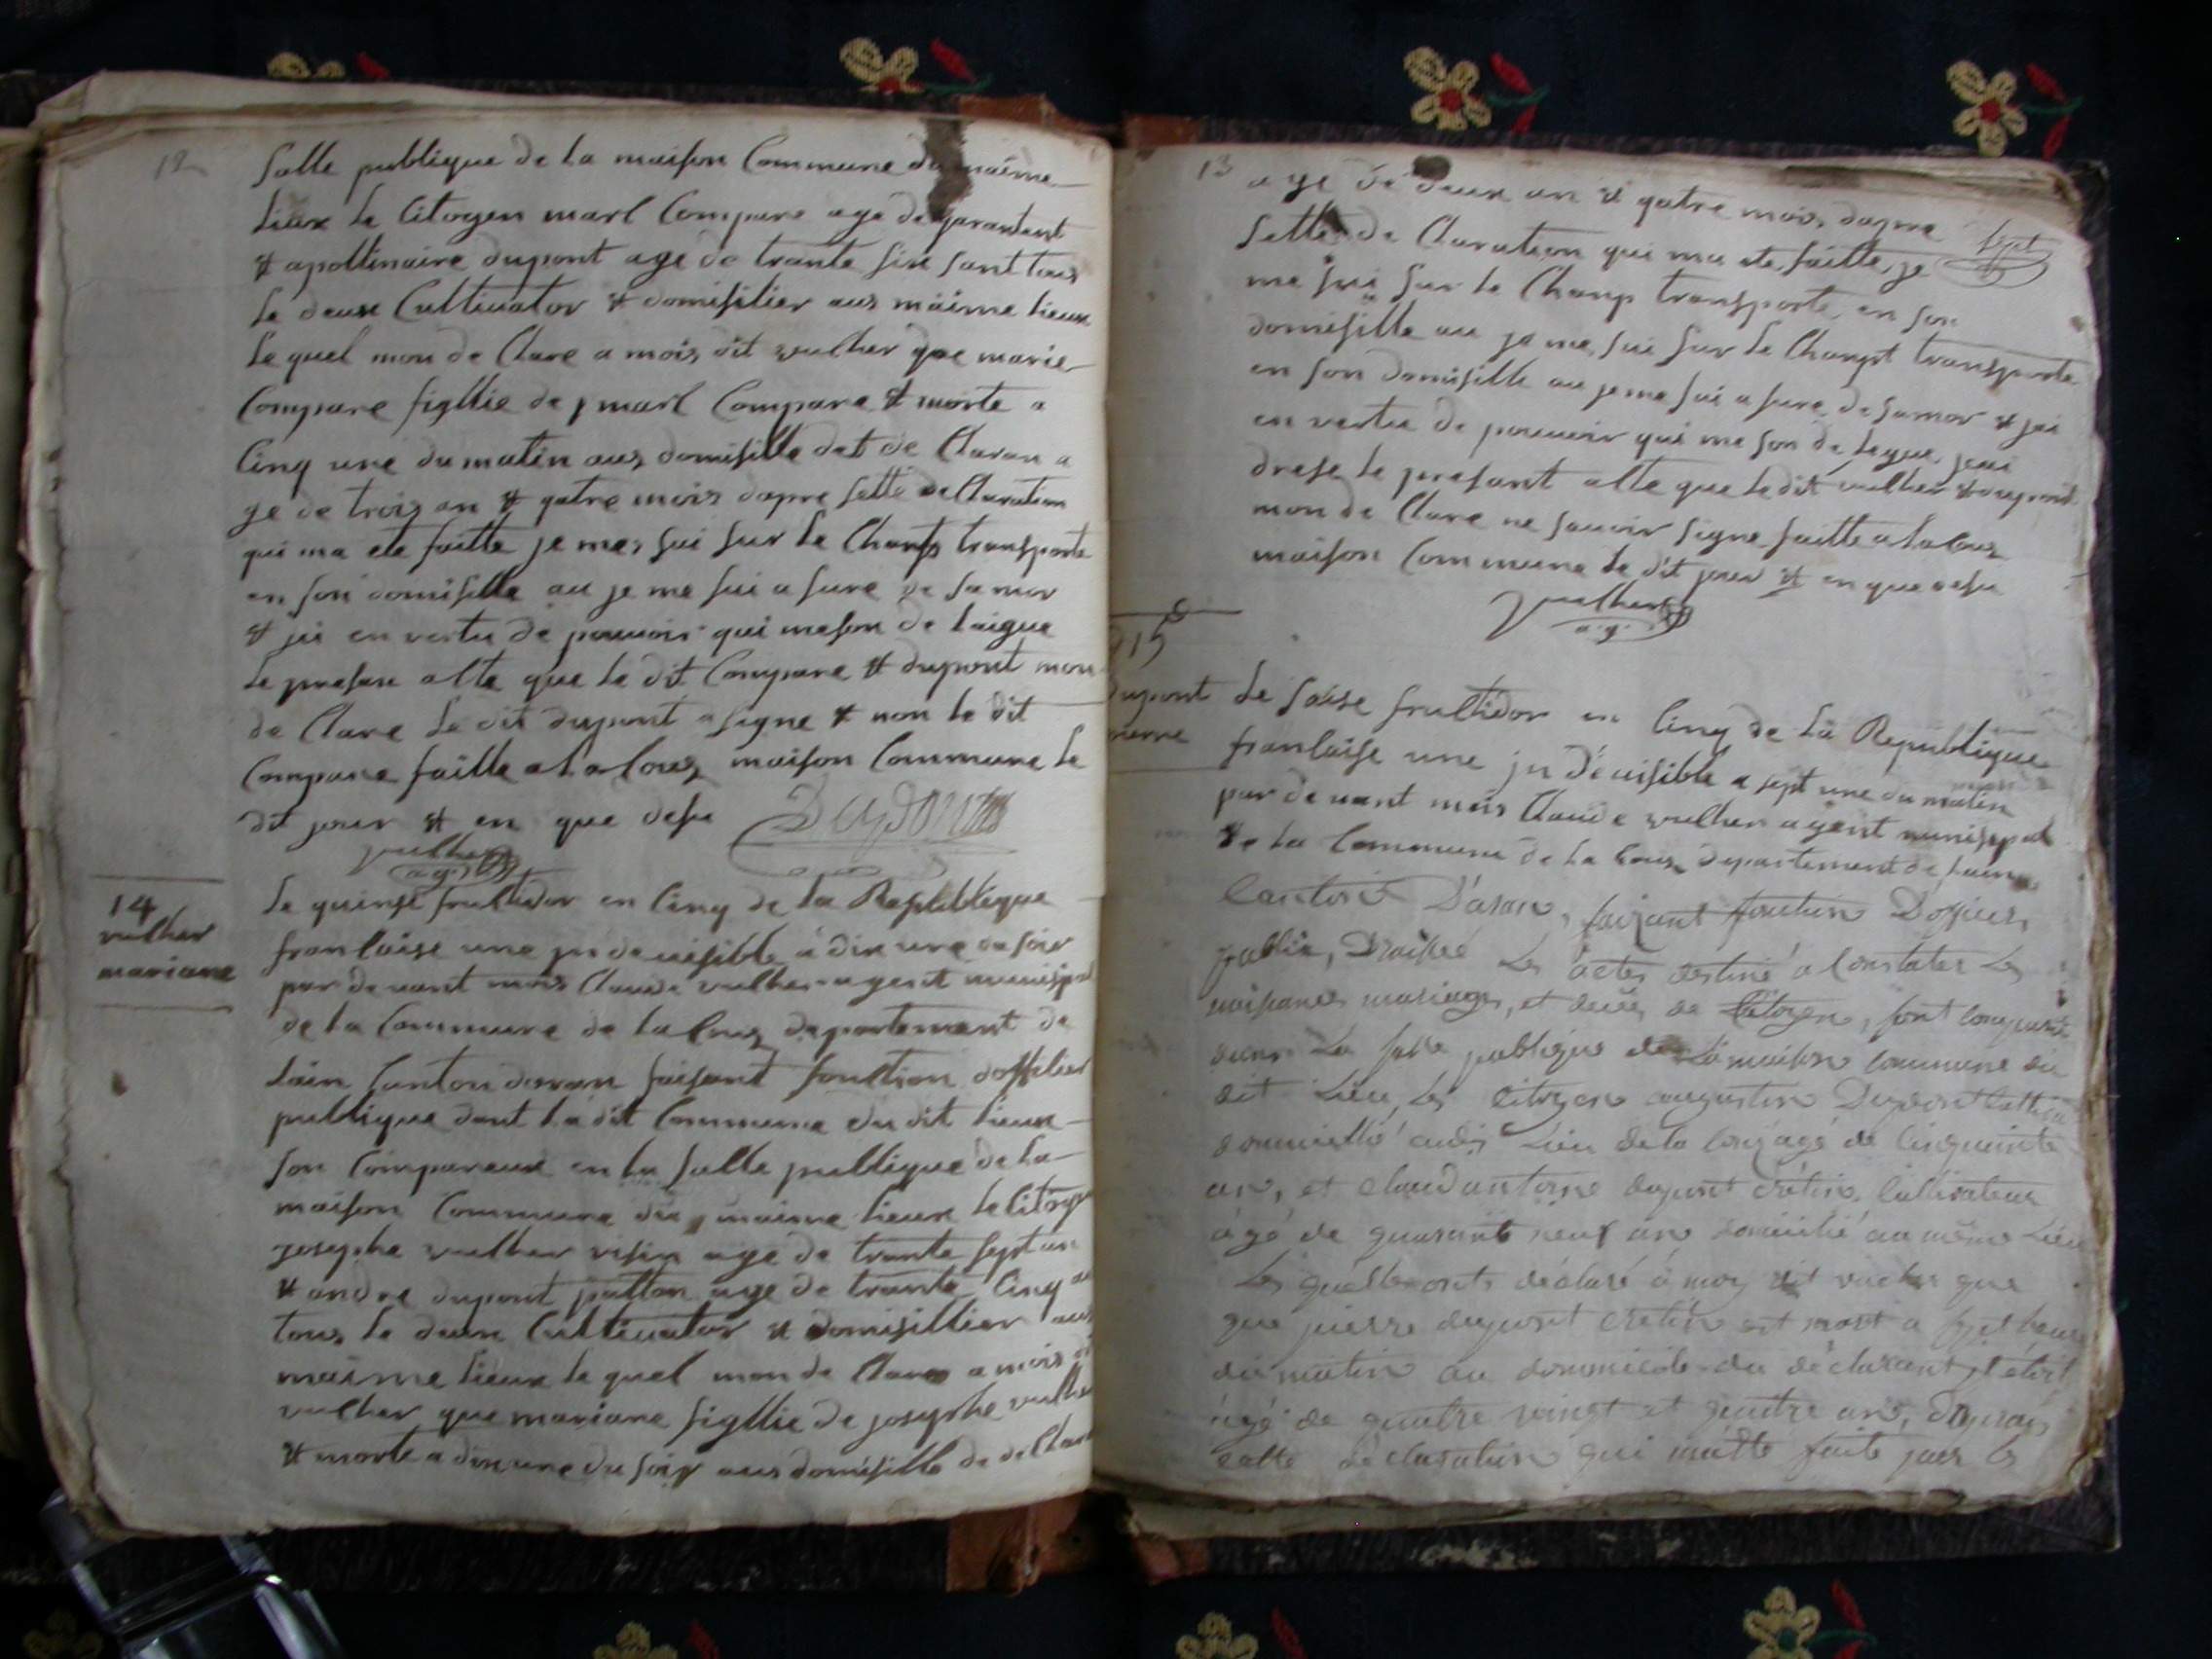 12
salle publique de la maison Commune du maime
lieux le Citoyen marl Compare age de garantent
& apollinaire dupont age de trante six sant tous
le deux Cultivator & domisilier aus maime lieux
le quel mon de Clare a mois dit vulher que marie
Compare figllie de marl Compare & morte a
Cinq une du matin aus domisille det de Claran a
ge de trois an & qatre mois dapre sette de Claration
qui ma ete faitte je mes sui sur le Champ transporte
en son domisille au je me sui a sure de sa mor
& jai en vertu de pouvoir qui me son de laigue
le presan alte que le dit Compare & dupont mon
de Clare le dit dupont a signe & non le dit
Compare faitte a la Couz maison Commune le
dit jour & en que desu Dupont
vulher
a g
14
vulher
mariane
le quinse fructidor en Cinq de la Republique
franlaise une in de visible a dix une du soir
par de vant mois Claude vulher agent munispal
de la Commune de la Couz departement de
lain Canton daran faisant fonction doffilier
publique dant la dit Commune du dit lieux
son Compareux en la salle publique de la
maison Commune du maime lieux le Citoye
josephe vulher visin age de trante sept an
& andre dupont patton age de trante Cinq an
tous le deux Cultivator & domisillier aus
maime lieux le quel mon de Clare a mois dit
vulher que mariane figllie de josephe vulher
& morte a dix une du soir aus domisille de de Clara
13
age de deux an & qatre mois dapre
sette de Claration qui ma ete faitte je
sept
me sui sur le Champ transporte en son
domisille au je me sui sur le Champt transporte
en son domisille au je me sui a sure de sa mor & jai
en vertu de pouvoir qui me son de legue jeai
drese le presant alte que le dit vulher & dupont
mon de Clare ne savoir signe faitte a la Couz
maison Commune le dit jour & en que desu
vulher
a g
15
dupont
pierre
le saise fructidor en Cinq de la Republique
franlaise une in de visible a sept une du matin
par de vant mois Claude vulher agent munispal
de la Commune de la Couz departement de lain
Canton Daran, faizant fonction Doffisier
public, Draissé Les actes destiné a Constater Les
naissances mariages, et decès de Citoyen, sont comparu
dans La salle publique de La maison commune du
dit Lieu Les Citoyen augustin Dupont
dommicillié audit Lieu de la Couz agé de Cinquante
an, et claud antoine dupont crétin Cultivateur
agé de quarante neuf ans domicilié au même Lieu
Les quelle onts déclaré à moy dit vucher que
que pierre dupont crétin est mort a sept heure
du matin au dommicile du déclarant, etoit
agé de quatre vaingt et quatre ans, Daprais
cette Declaration qui matté faite jaes